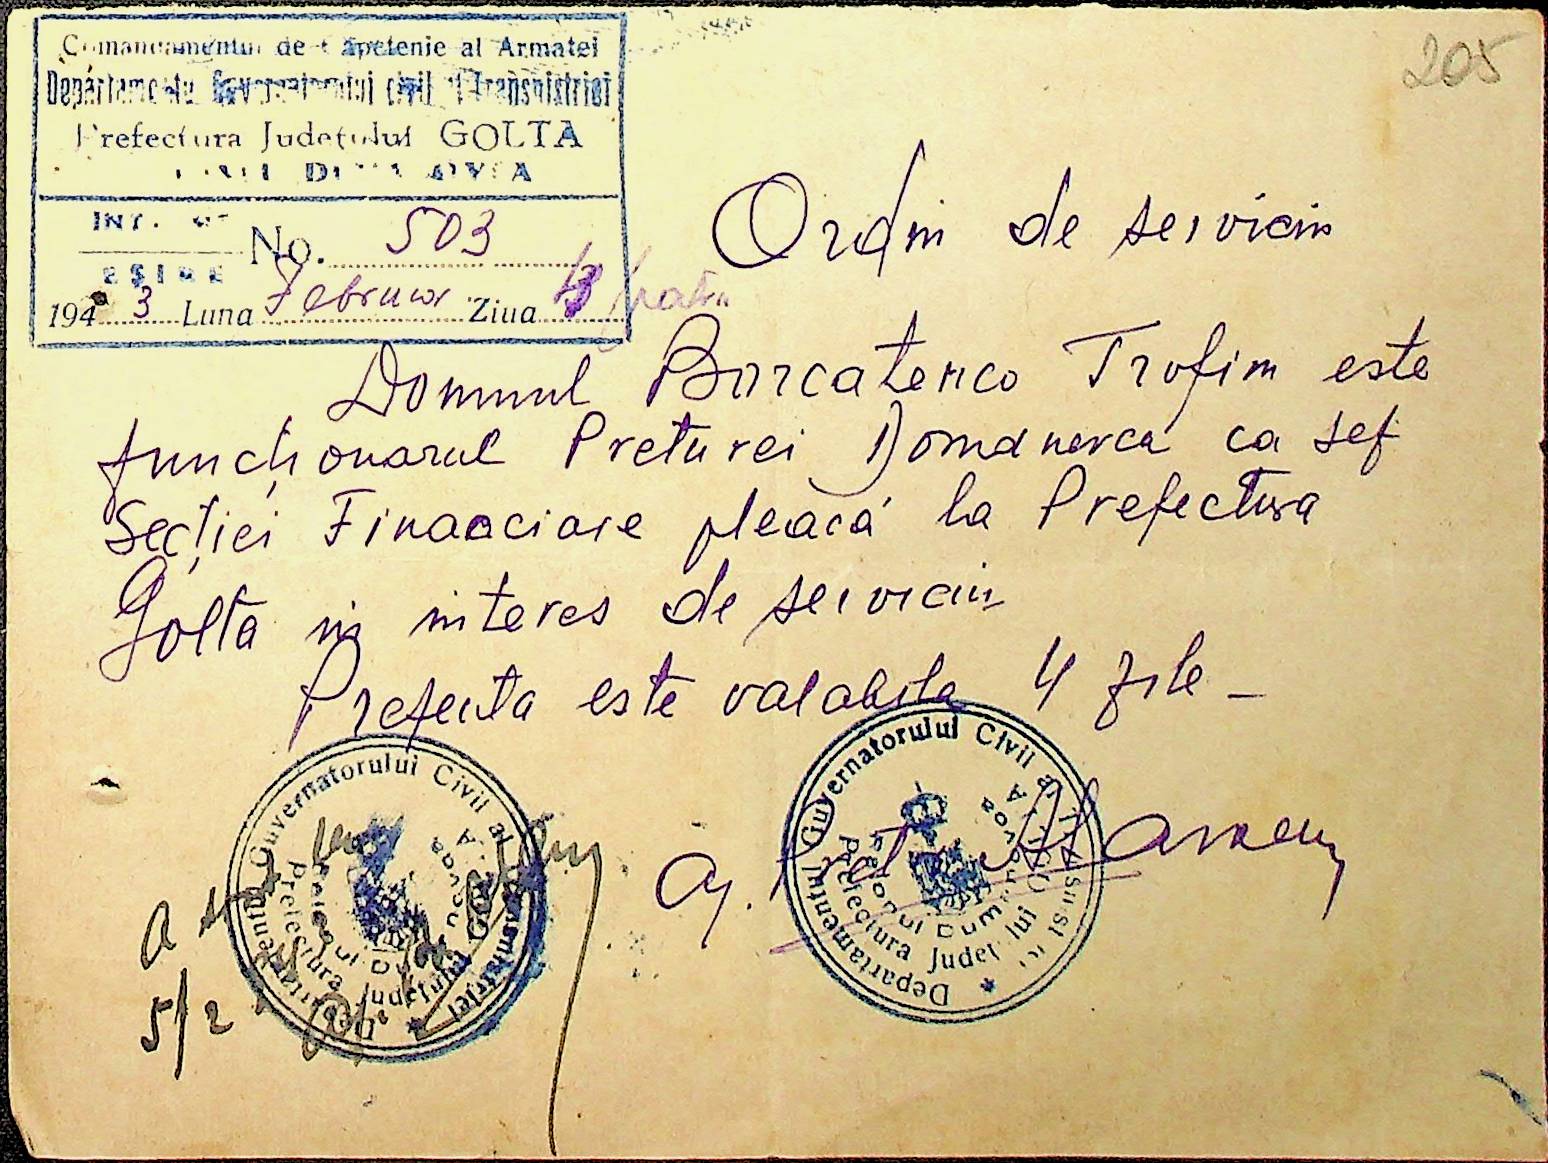 205
Comandamentul de Căpetenie al Armatei
Departamentul Guvernatorului civil al Transnistriei
Prefectura Județului GOLTA
INT.
No. 503
EȘIRE
194 3 Luna Februar Ziua
patru
Ordin de serviciu
Domnul Borcatenco Trofim este
funcționarul Preturei Domanevca ca șef
Secției Financiare pleacă la Prefectura
Golta in interes de serviciu
Prefenta este valabila 4 zile -
Departamentul Guvernatorului Civil al Transnistriei
Prefectura Județului
Departamentul Guvernatorului Civil al
Prefectura Județului
a
5/2